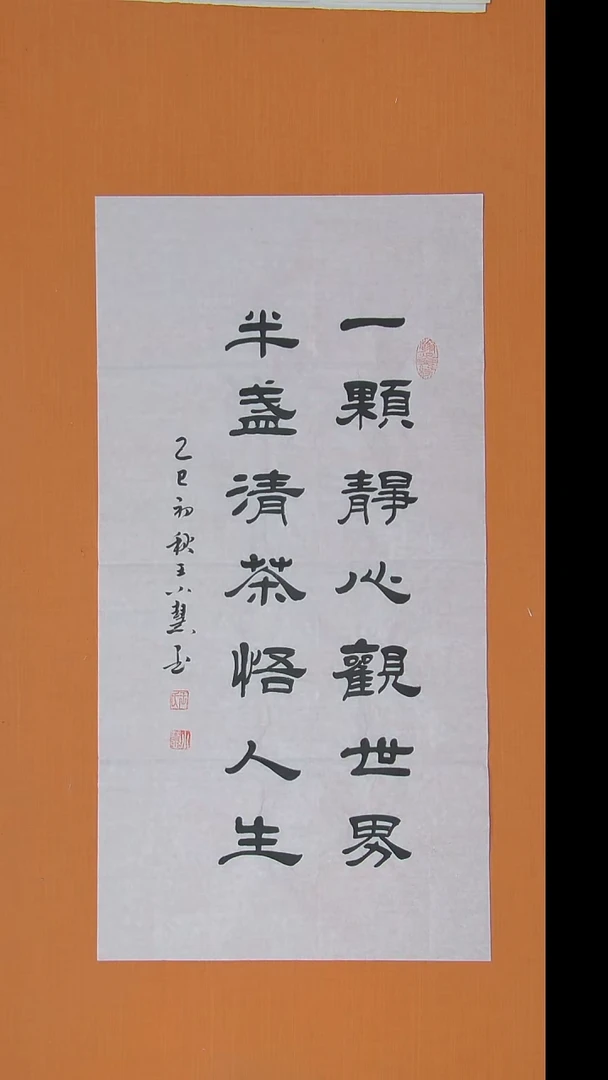 一顆靜心觀世界
半盞清茶悟人生
乙巳初秋王小慧書